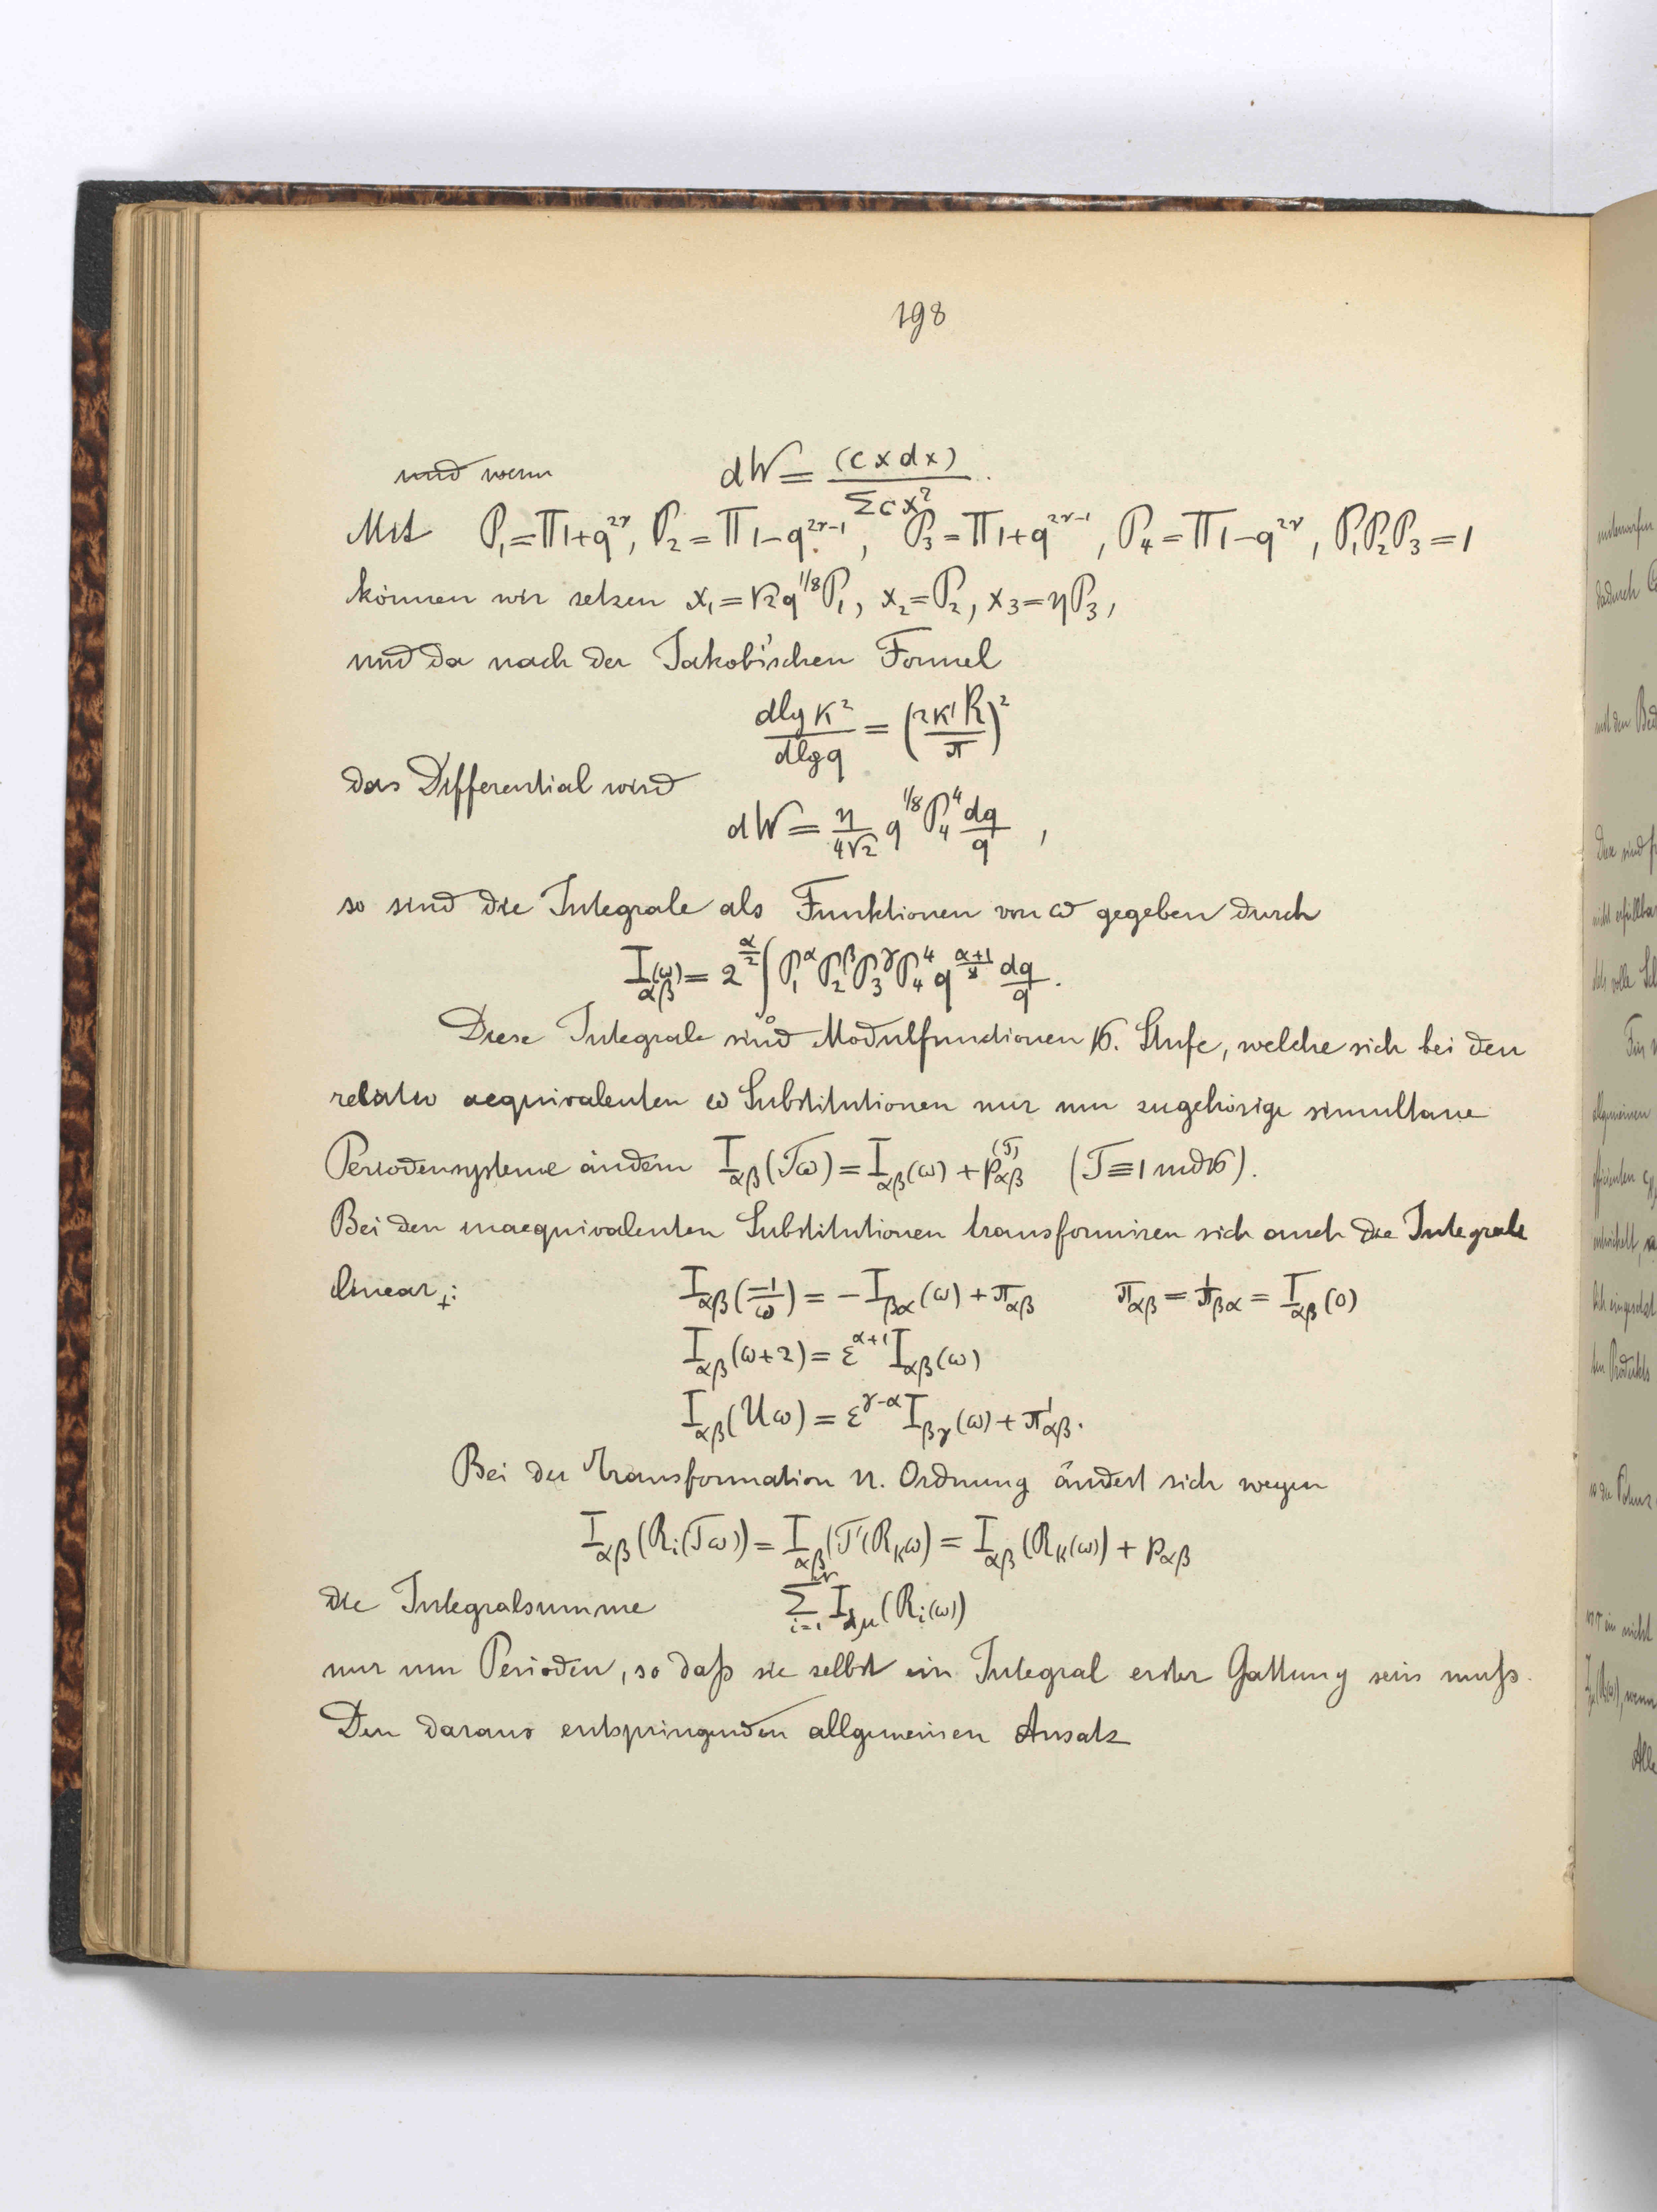 198
und wenn dW = (c x dx) / Σcx²
Mit P₁ = Π1+q²ᵛ, P₂ = Π1−q²ᵛ⁻¹, P₃ = Π1+q²ᵛ⁻¹, P₄ = Π1−q²ᵛ, P₁P₂P₃ = 1
können wir setzen x₁ = √2 q^{1/8} P₁, x₂ = P₂, x₃ = ηP₃,
und da nach der Jakobi'schen Formel
dlg κ² / dlg q = (2κ' K / π)²
das Differential wird
dW = η/(4√2) q^{1/8} P₄⁴ dq/q ,
so sind die Integrale als Funktionen von ω gegeben durch
I_{αβ}(ω) = 2^{α/2} ∫₀ P₁^α P₂^β P₃^γ P₄⁴ q^{(α+1)/8} dq/q .
Diese Integrale sind Modulfunctionen 16. Stufe, welche sich bei den
relativ aequivalenten ω Substitutionen nur um zugehörige simultane
Periodensysteme ändern I_{αβ}(Tω) = I_{αβ}(ω) + p_{αβ}^{(T)} (T ≡ 1 mod 16).
Bei den inaequivalenten Substitutionen transformiren sich auch die Integrale
linear: I_{αβ}(−1/ω) = − I_{βα}(ω) + π_{αβ} π_{αβ} = π_{βα} = I_{αβ}(0)
I_{αβ}(ω+2) = ε^{α+1} I_{αβ}(ω)
I_{αβ}(Uω) = ε^{γ−α} I_{βγ}(ω) + π'_{αβ}.
Bei der Transformation n. Ordnung ändert sich wegen
I_{αβ}(R_i(Tω)) = I_{αβ}(T'(R_kω) = I_{αβ}(R_k(ω)) + p_{αβ}
die Integralsumme Σ_{i=1} I_{λμ}(R_i(ω))
nur um Perioden, so daß sie selbst ein Integral erster Gattung sein muß.
Den daraus entspringenden allgemeinen Ansatz